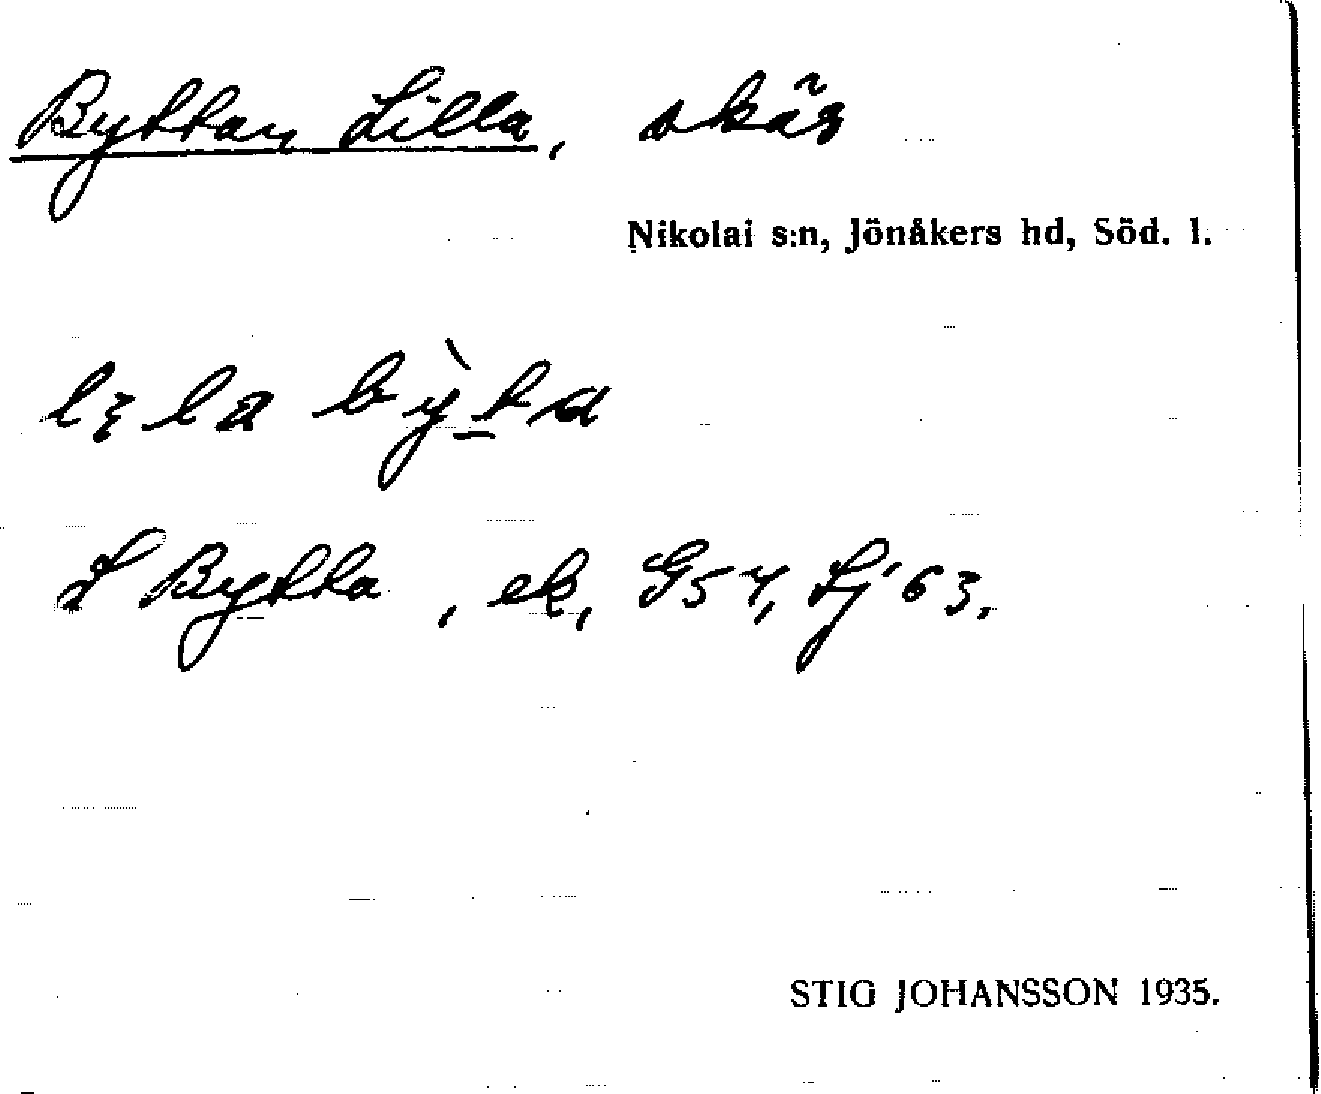 Byttan Lilla, skär
Nikolai s:n, Jönåkers hd, Söd. l.
L Bytta, ek, G57, Lj 63.
STIG JOHANSSON 1935.